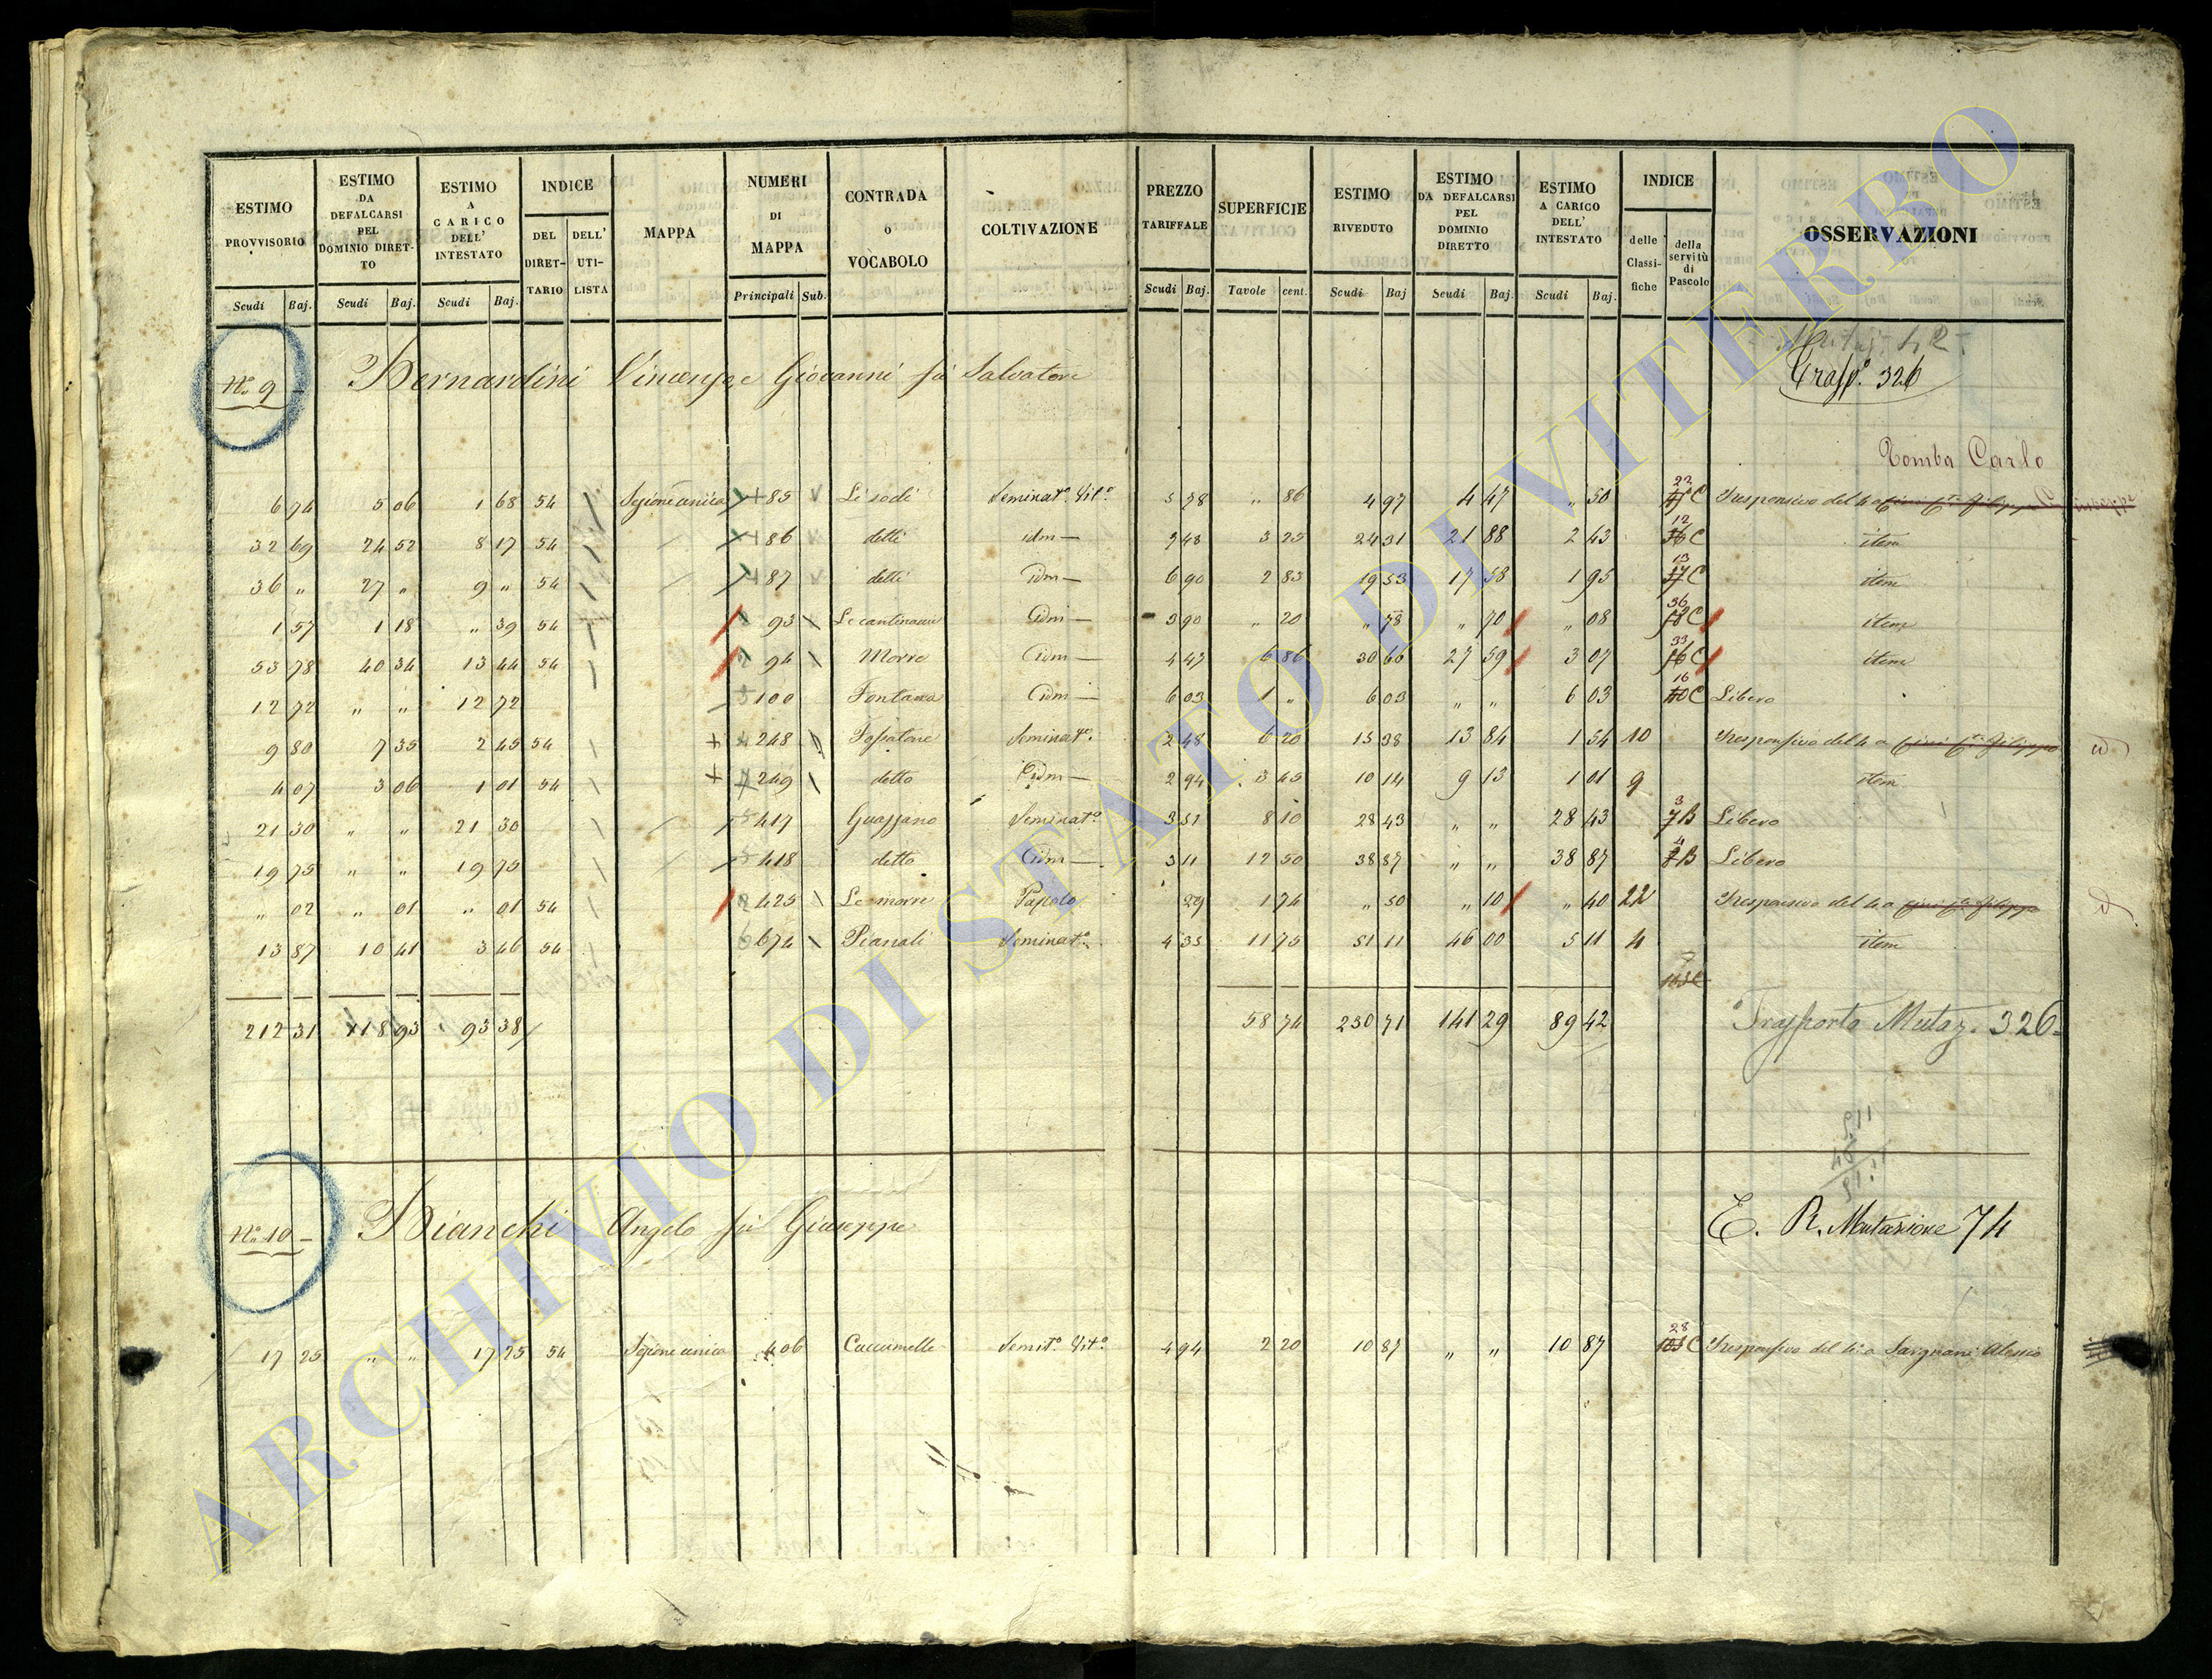 ESTIMO PROVVISORIO | ESTIMO DA DEFALCARSI PEL DOMINIO DIRETTO | ESTIMO A CARICO DELL' INTESTATO | INDICE DEL DIRET-TARIO | DELL' UTI-LISTA | MAPPA | NUMERI DI MAPPA | CONTRADA O VOCABOLO | COLTIVAZIONE | PREZZO TARIFFALE | SUPERFICIE | ESTIMO RIVEDUTO | ESTIMO DA DEFALCARSI PEL DOMINIO DIRETTO | ESTIMO A CARICO DELL' INTESTATO | INDICE delle Classi-fiche | della servitù di Pascolo | OSSERVAZIONI
Scudi Baj. | Scudi Baj. | Scudi Baj. | Principali Sub. | Scudi Baj. | Tavole cent. | Scudi Baj | Scudi Baj. | Scudi Baj.
N.o 9 Bernardini Vincenzo e Giovanni fù Salvatore
Trasp.o 326
Tomba Carlo
6 74 | 5 06 | 1 68 | 54 | Sezione unica | 85 | Li sodi | Seminat.o Vit.o | 5 78 | " 86 | 4 97 | 4 47 | " 50 | 22 C | Responsivo del 4 a
32 69 | 24 52 | 8 17 | 54 | 86 | detti | idm | 7 48 | 3 25 | 24 31 | 21 88 | 2 43 | 12 C | item
36 " | 27 " | 9 " | 54 | 87 | detti | idm | 6 90 | 2 83 | 19 53 | 17 58 | 1 95 | 13 C | item
1 57 | 1 18 | " 39 | 54 | 93 | idm | 3 90 | " 20 | " 78 | " 70 | " 08 | 36 C | item
53 78 | 40 34 | 13 44 | 54 | 94 | Morre | idm | 4 47 | 6 86 | 30 66 | 27 59 | 3 07 | 33 C | item
12 72 | " " | 12 72 | 100 | Fontana | idm | 6 03 | 1 " | 6 03 | " " | 6 03 | 16 C | Libero
9 80 | 7 35 | 2 45 | 54 | 248 | Seminat.o | 2 48 | 6 20 | 15 38 | 13 84 | 1 54 | 10 | Responsivo del 4 a
4 07 | 3 06 | 1 01 | 54 | 249 | detto | idm | 2 94 | 3 45 | 10 14 | 9 13 | 1 01 | 9 | item
21 30 | " " | 21 30 | 417 | Seminat.o | 3 51 | 8 10 | 28 43 | " " | 28 43 | 3 B | Libero
19 75 | " " | 19 75 | 418 | detto | idm | 3 11 | 12 50 | 38 87 | " " | 38 87 | 4 B | Libero
" 02 | " 01 | " 01 | 54 | 425 | Le morre | Pascolo | 29 | 1 74 | " 50 | " 10 | " 40 | 22 | Responsivo del 4 a
13 87 | 10 41 | 3 46 | 54 | 674 | Pianali | Seminat.o | 4 35 | 11 75 | 51 11 | 46 00 | 5 11 | 4 | item
212 31 | 118 93 | 93 38 | 58 74 | 230 71 | 141 29 | 89 42 | Trasporto Mutaz. 326
N.o 10 Bianchi Angelo fù Giuseppe
E. R. Mutazione 74
17 25 | " " | 17 25 | 54 | Sezione unica | 406 | Cuccumelle | Semit.o Vit.o | 4 94 | 2 20 | 10 87 | " " | 10 87 | 28 C | Responsivo del 4.o a Alessio
ARCHIVIO DI STATO DI VITERBO